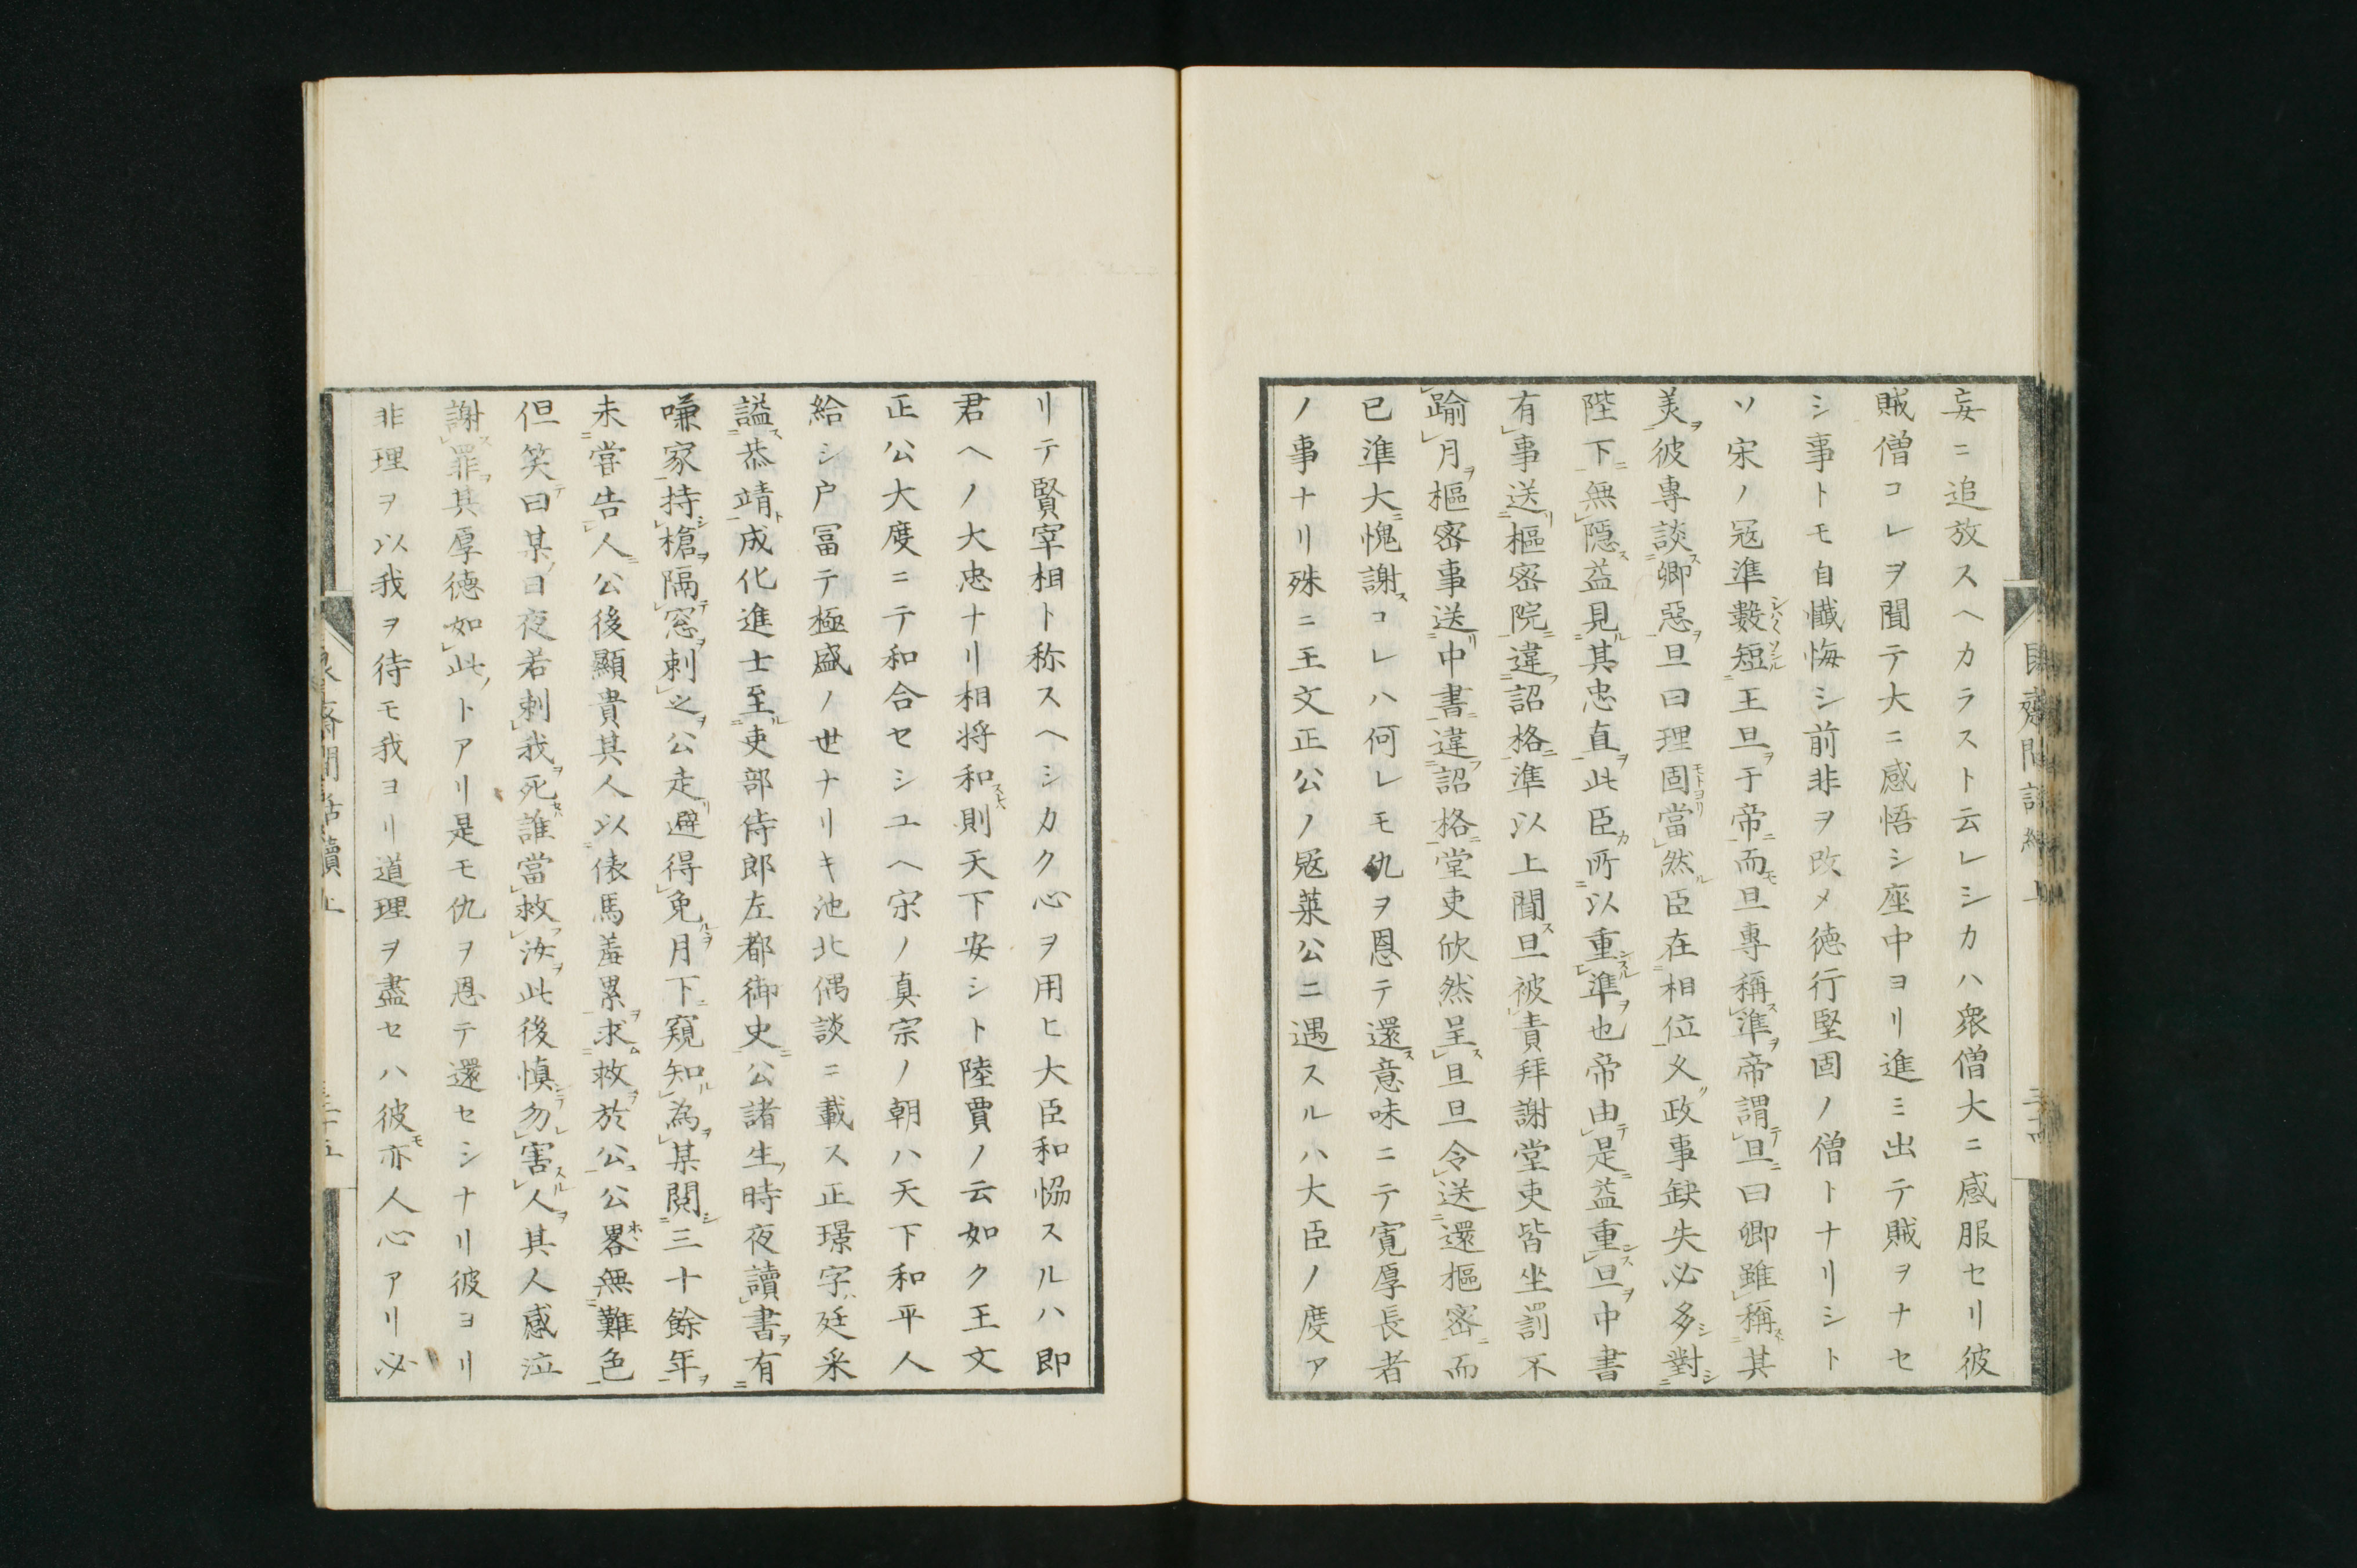 妄ニ追放スヘカラスト云レシカハ衆僧大ニ感服セリ彼
賊僧コレヲ聞テ大ニ感悟シ座中ヨリ進ミ出テ賊ヲナセ
シ事トモ自懺悔シ前非ヲ改メ徳行堅固ノ僧トナリシト
ソ宋ノ冦準數短王旦于帝而旦專稱準帝謂旦曰卿雖稱其
美彼專談卿惡旦曰理固當然臣在相位久政事缺失必多對
陛下無隱益見其忠直此臣所以重準也帝由是益重旦中書
有事送樞密院違詔格準以上聞旦被責拜謝堂吏皆坐罰不
踰月樞密事送中書違詔格堂吏欣然呈旦旦令送還樞密而
已準大愧謝コレハ何レモ仇ヲ恩テ還意味ニテ寛厚長者
ノ事ナリ殊ニ王文正公ノ冦萊公ニ遇スルハ大臣ノ度ア
リテ賢宰相ト称スヘシカク心ヲ用ヒ大臣和恊スルハ即
君ヘノ大忠ナリ相将和則天下安シト陸賈ノ云如ク王文
正公大度ニテ和合セシユヘ宋ノ真宗ノ朝ハ天下和平人
給シ户冨テ極盛ノ世ナリキ池北偶談ニ載ス正璟字廷采
謚恭靖成化進士至吏部侍郎左都御史公諸生時夜讀書有
嗛家持槍隔窓刺之公走避得免月下窺知為某閲三十餘年
未嘗告人公後顯貴其人以俵馬羞累求救於公公畧無難色
但笑曰某日夜若刺我死誰當救汝此後慎勿害人其人感泣
謝罪其厚德如此トアリ是モ仇ヲ恩テ還セシナリ彼ヨリ
非理ヲ以我ヲ待モ我ヨリ道理ヲ盡セハ彼亦人心アリ必